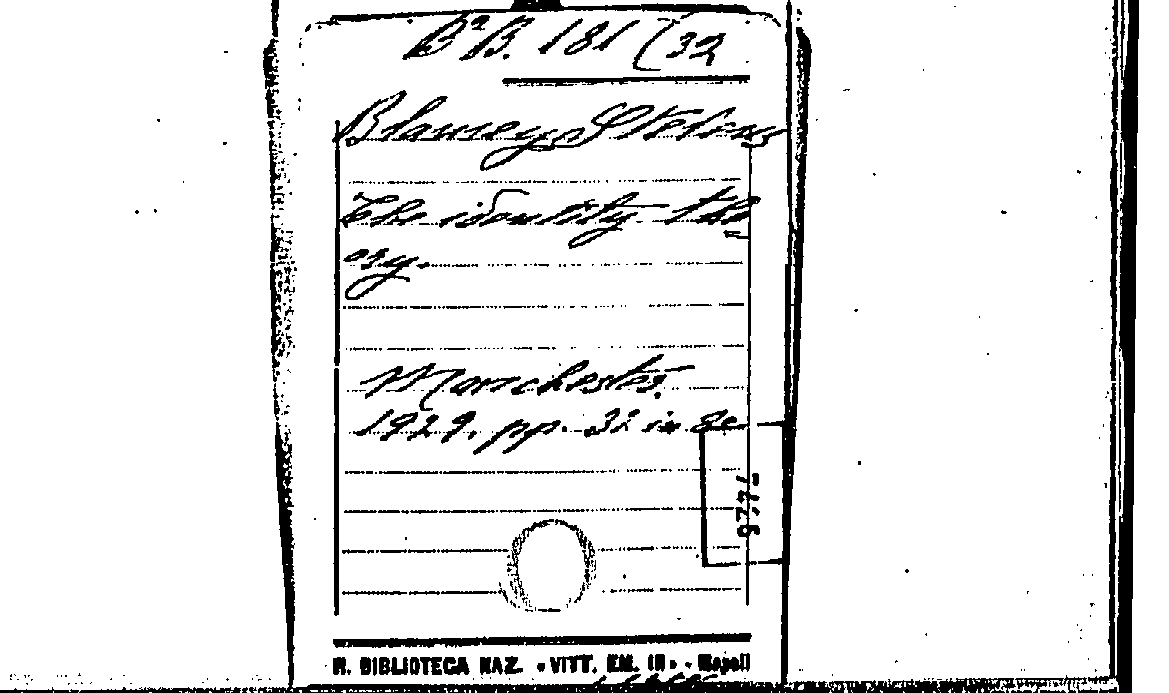 Bª B. 181 (32
Blamey Stevens
The identity the
ory.
Manchester.
1929. pp. 32 in 8º
R. BIBLIOTECA NAZ. "VITT. EM. III" - Napoli